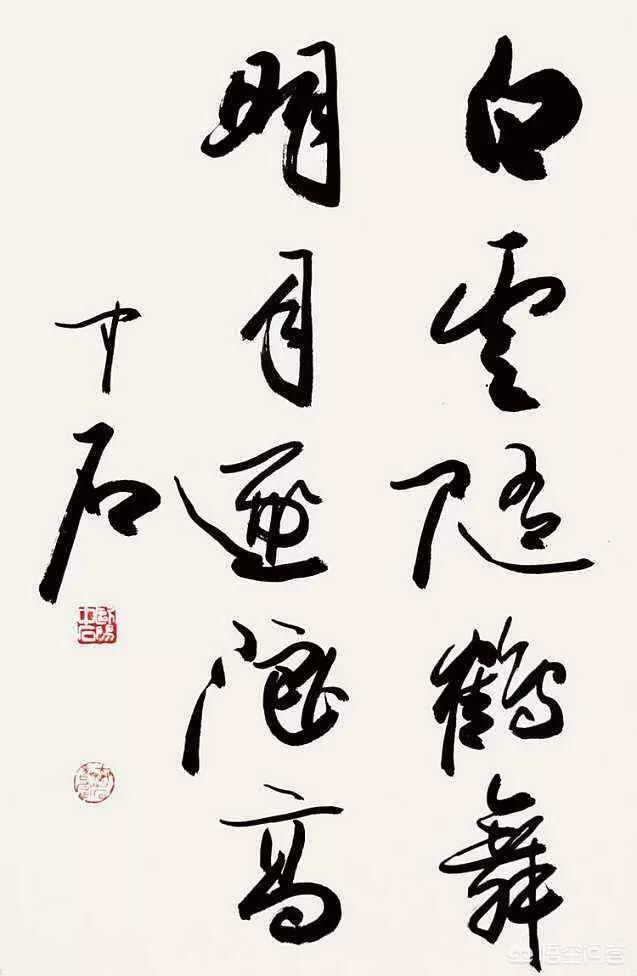 白雲隨鶴舞
明月高
中石
歐陽中石
悟空问答